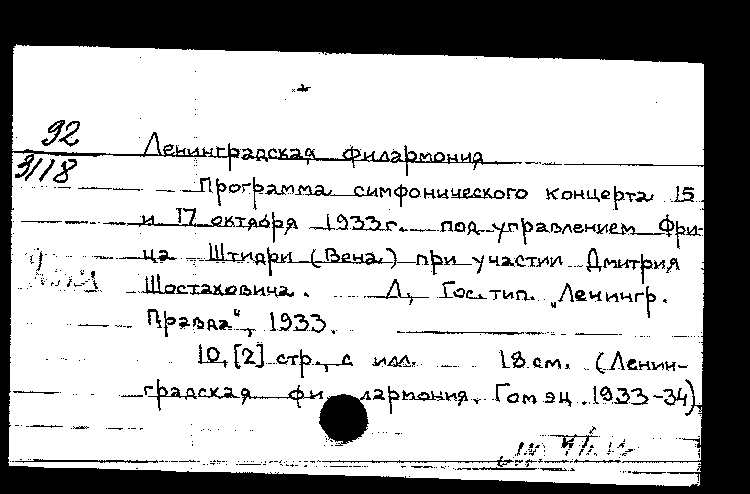 92
3118
Ленинградская филармония
Программа симфонического концерта 15
и 17 октября 1933 г. под управлением Фри-
ца Штидри (Вена) при участии Дмитрия
Шостаковича. Л, Гос. тип. „Ленингр.
Правда", 1933.
10, [2] стр., с илл. 18 см. (Ленин-
градская филармония. Гомэц. 1933-34).